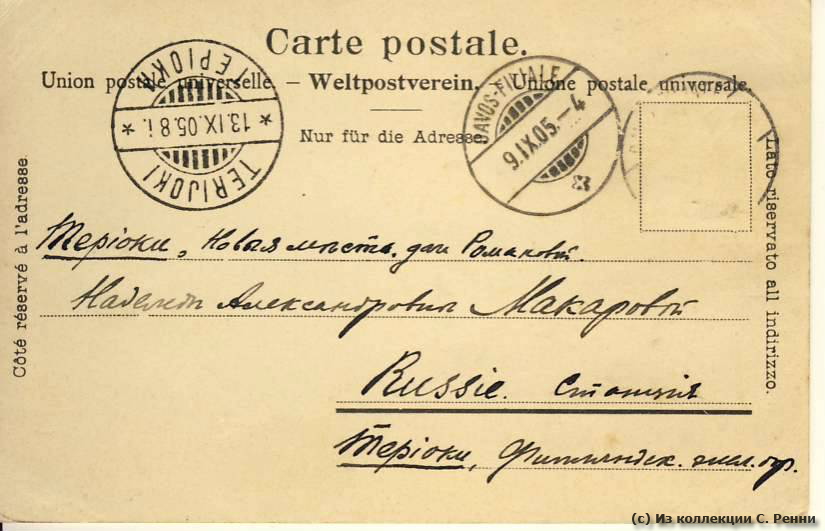 Carte postale.
Union postale universelle. – Weltpostverein. – Unione postale universale.
Nur für die Adresse
Côté réservé à l'adresse
Lato riservato all indirizzo.
TERIJOKI
* 13.IX.05.8 i. *
ТЕРІОКИ
DAVOS-FILIALE
9.IX.05.–4
Теріоки, Новыя мѣста. дач Романовой.
Надежды Александровны Макаровой
Russie. Станція
Теріоки, Финляндск. жел. дор.
(c) Из коллекции С. Ренни